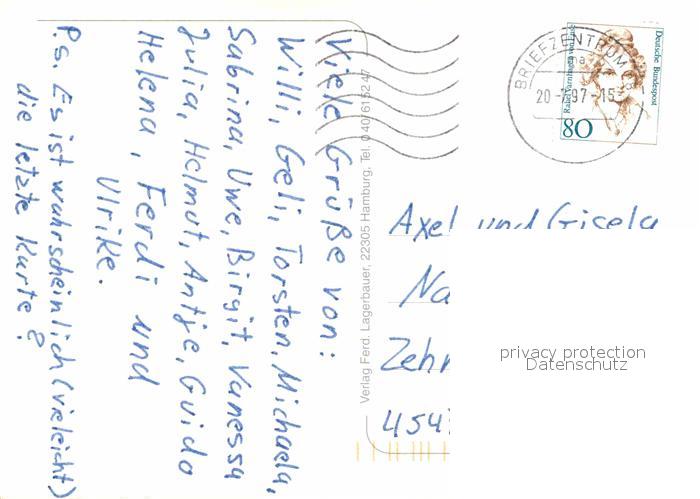 Viele Grüße von:
Willi, Geli, Torsten, Michaela,
Sabrina, Uwe, Birgit, Vanessa
Julia, Helmut, Antje, Guido
Helena, Ferdi und
Ulrike.
P.s. Es ist wahrscheinlich (vieleicht)
die letzte Karte?
Verlag Ferd. Lagerbauer, 22305 Hamburg, Tel. 0 40/6 15 2 47
BRIEFZENTRUM
20-7.97-15
Deutsche Bundespost
Rahel Varnhagen von Ense
80
Axel und Gisela
Na
Zehn
454
privacy protection
Datenschutz